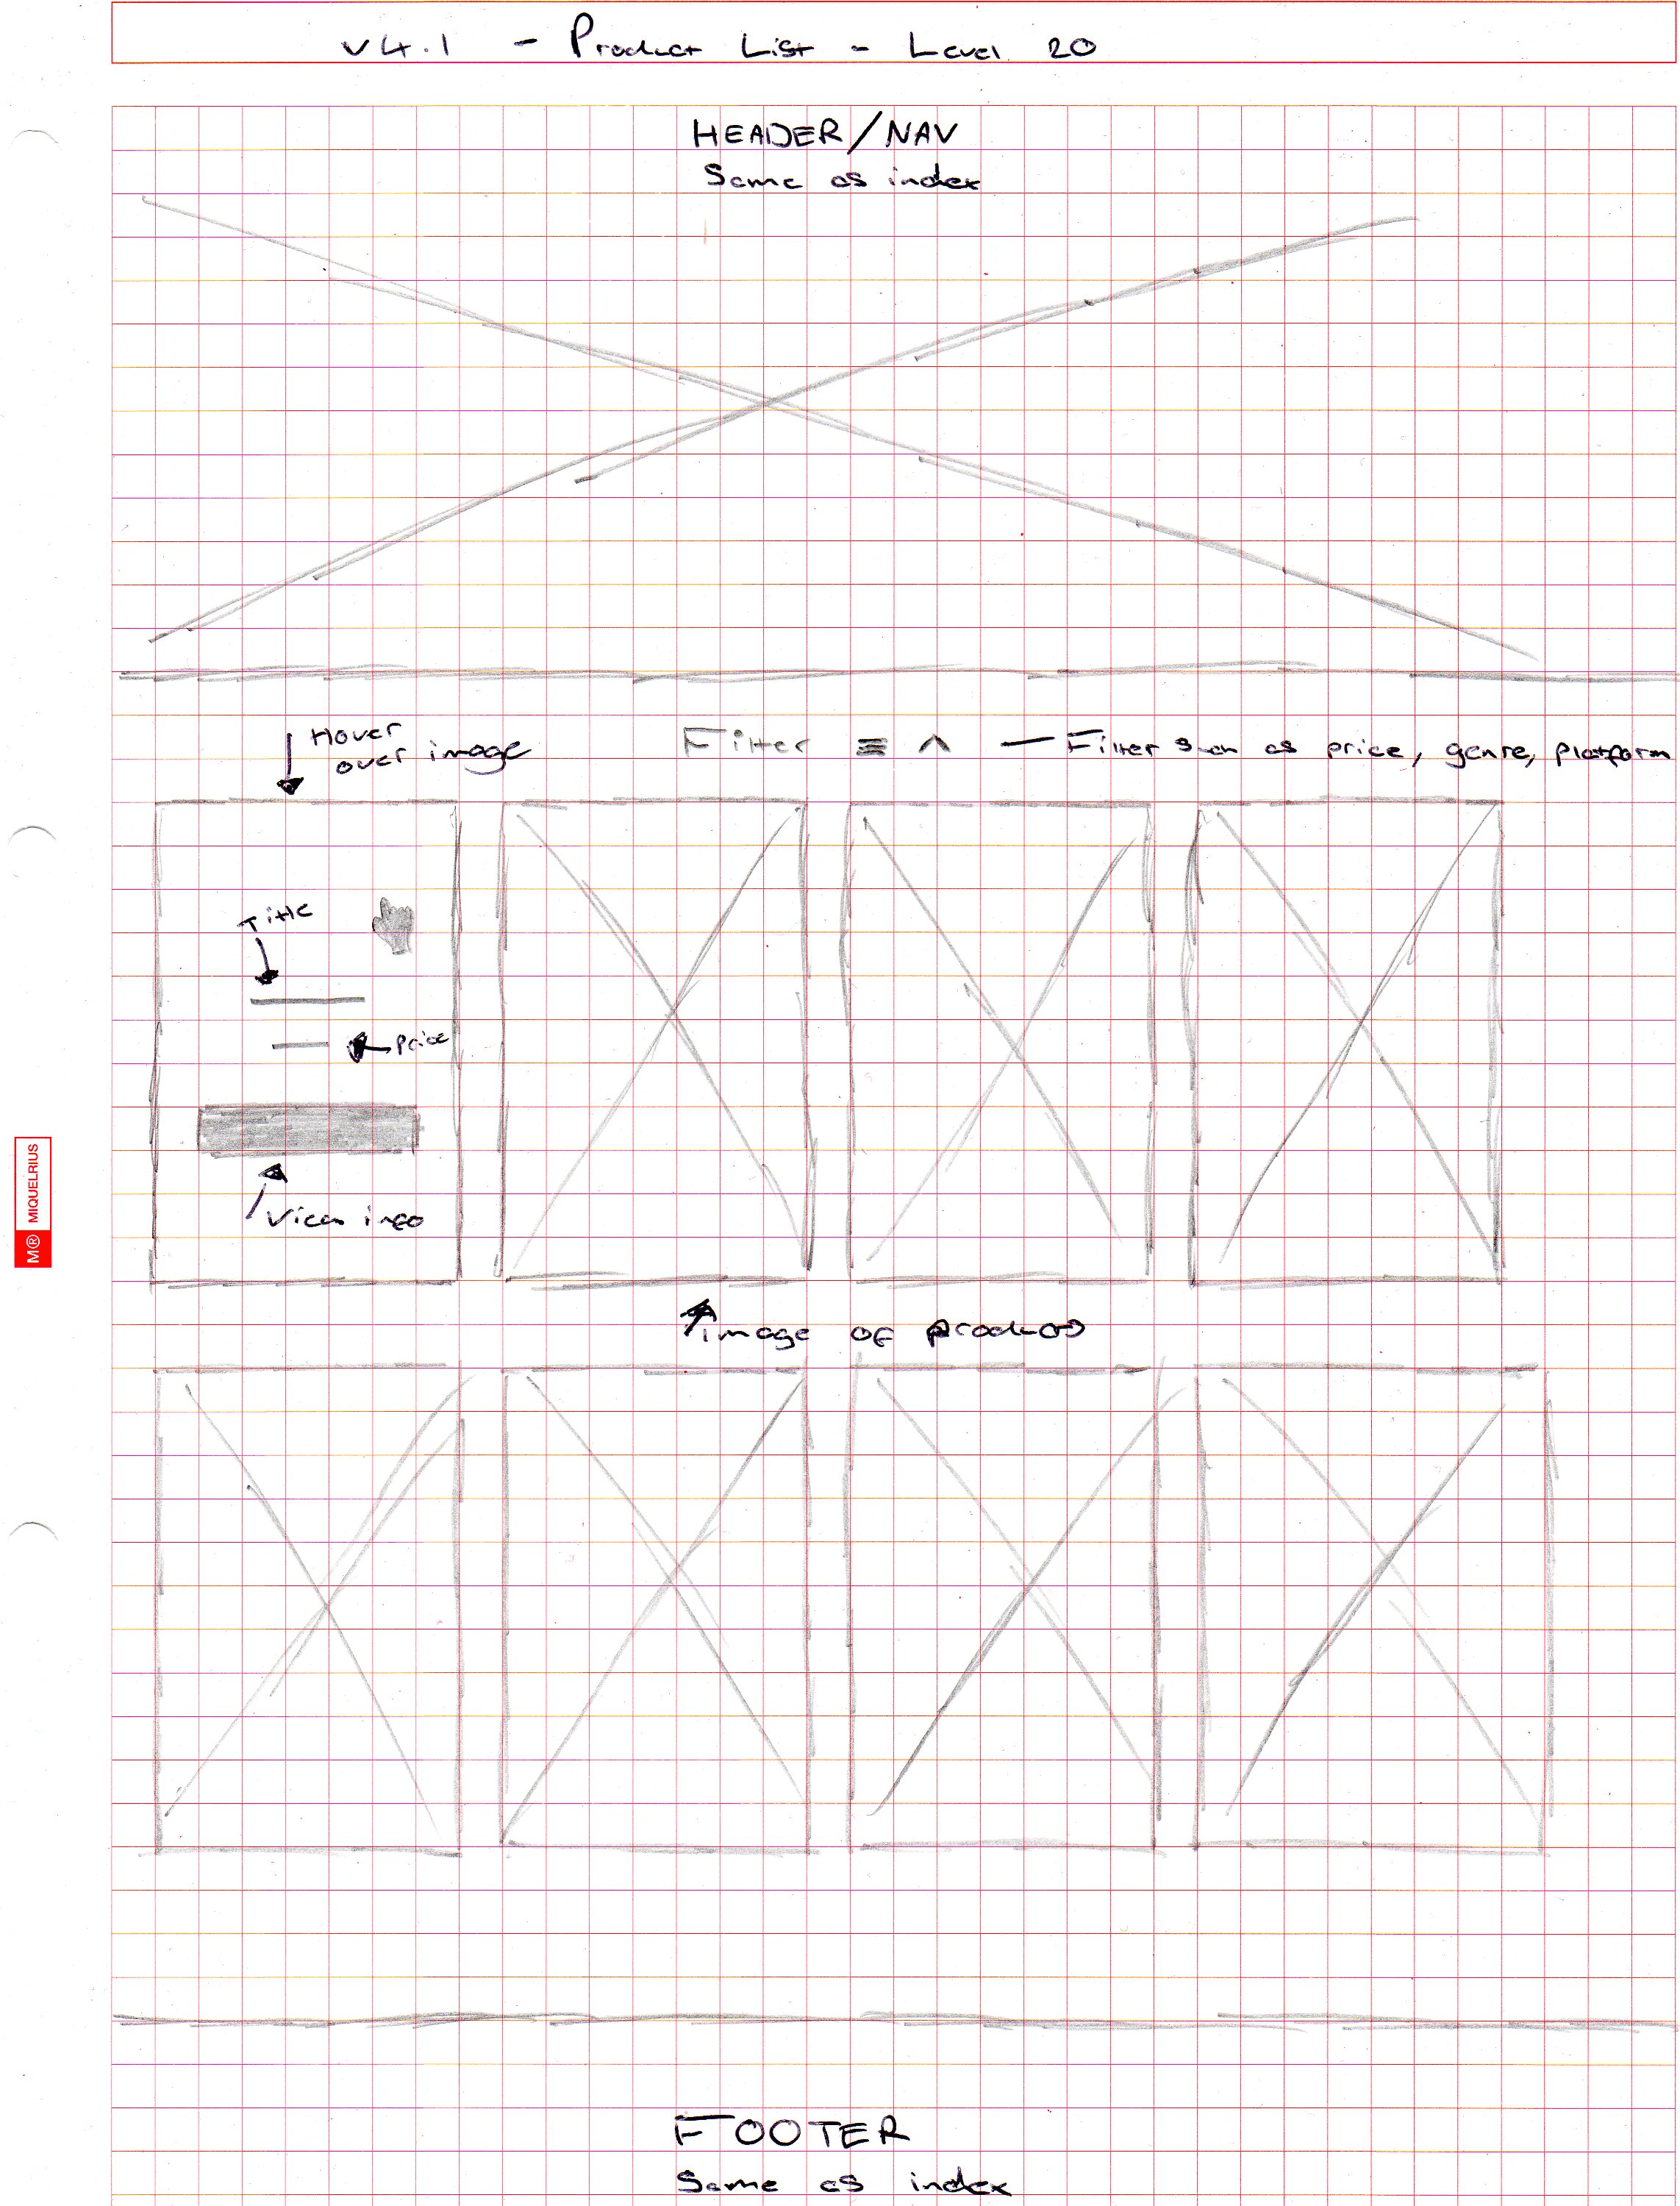 v4.1 - Product List - Level 20
HEADER/NAV
Same as index
Hover
over image
Filter ≡ ^ — Filter such as price, genre, platform
Title
Price
View info
image of product
FOOTER
Same as index
M® MIQUELRIUS